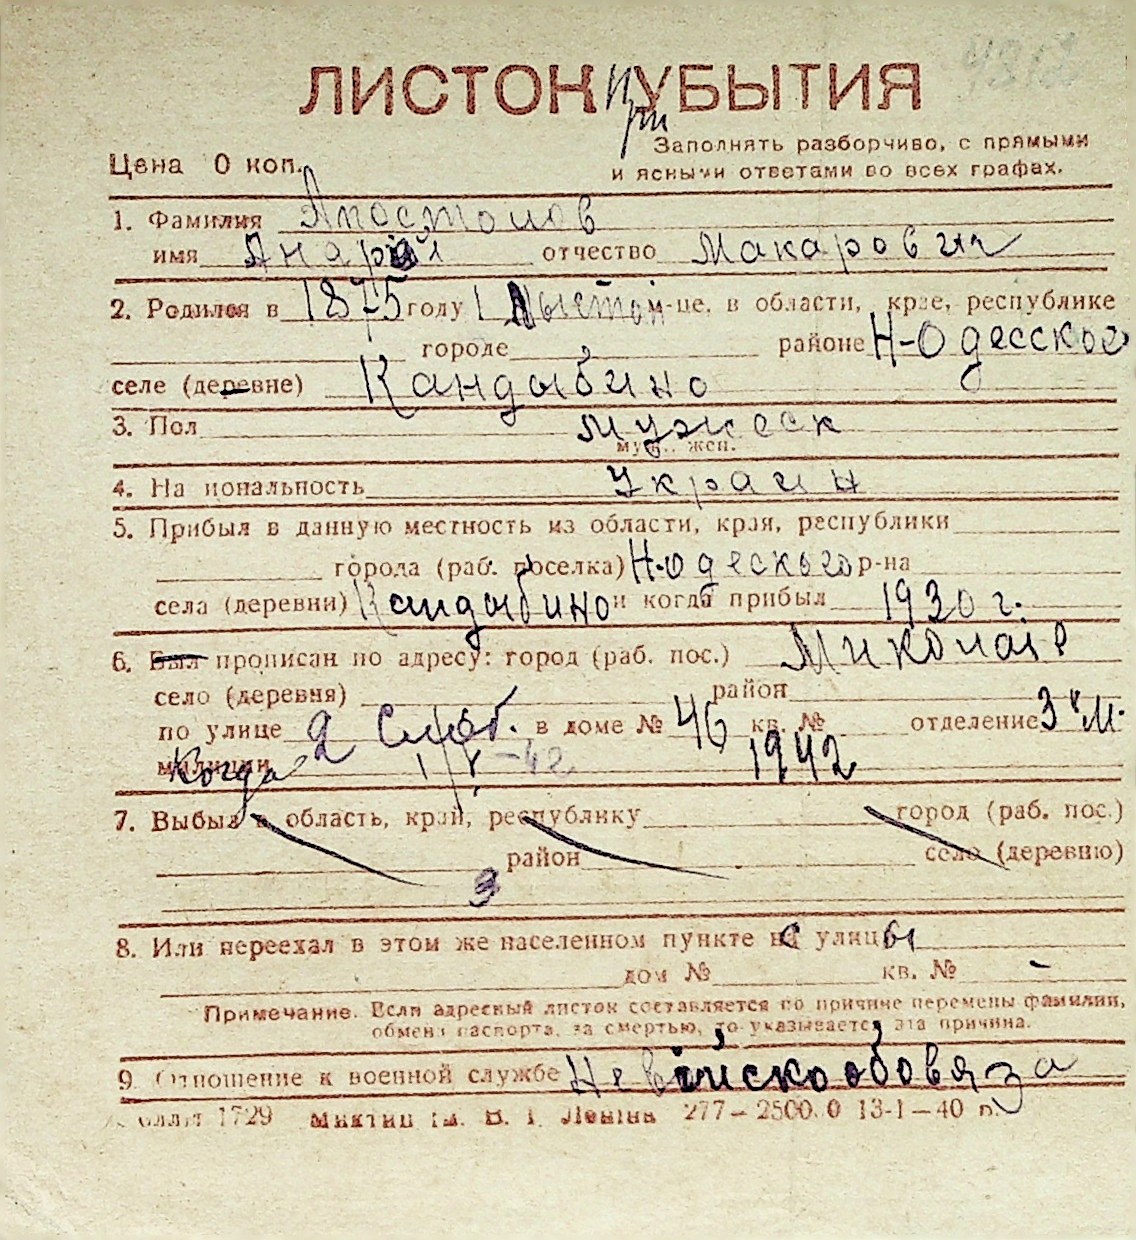 ЛИСТОК УБЫТИЯ
при
Заполнять разборчиво, с прямыми
Цена 0 коп. и ясными ответами во всех графах.
1. Фамилия Апостолов
имя Андрій отчество Макарович
2. Родился в 1875 году 1 м-це, в области, крае, республике
городе районе Н-Одесского
селе (деревне) Кандыбино
3. Пол мужеск
муж., жен.
4. Национальность украин
5. Прибыл в данную местность из области, края, республики
города (раб. поселка) Н-Одеского р-на
села (деревни) Кандыбино и когда прибыл 1930 г.
6. Был прописан по адресу: город (раб. пос.) Миколаїв
село (деревня) район
по улице 2 Слоб. в доме № 46 кв. № отделение 3 ч.м.
милиции Когда 1/V-42 1942
7. Выбыл в область, край, республику город (раб. пос.)
район село (деревню)
3
8. Или переехал в этом же населенном пункте на улицы
дом № кв. №
Примечание. Если адресный листок составляется по причине перемены фамилии,
обмена паспорта, за смертью, то указывается эта причина.
9. Отношение к военной службе Невійскообовяза
1729 им. В. І. Леніна 277—2500.0 13-I—40 р.